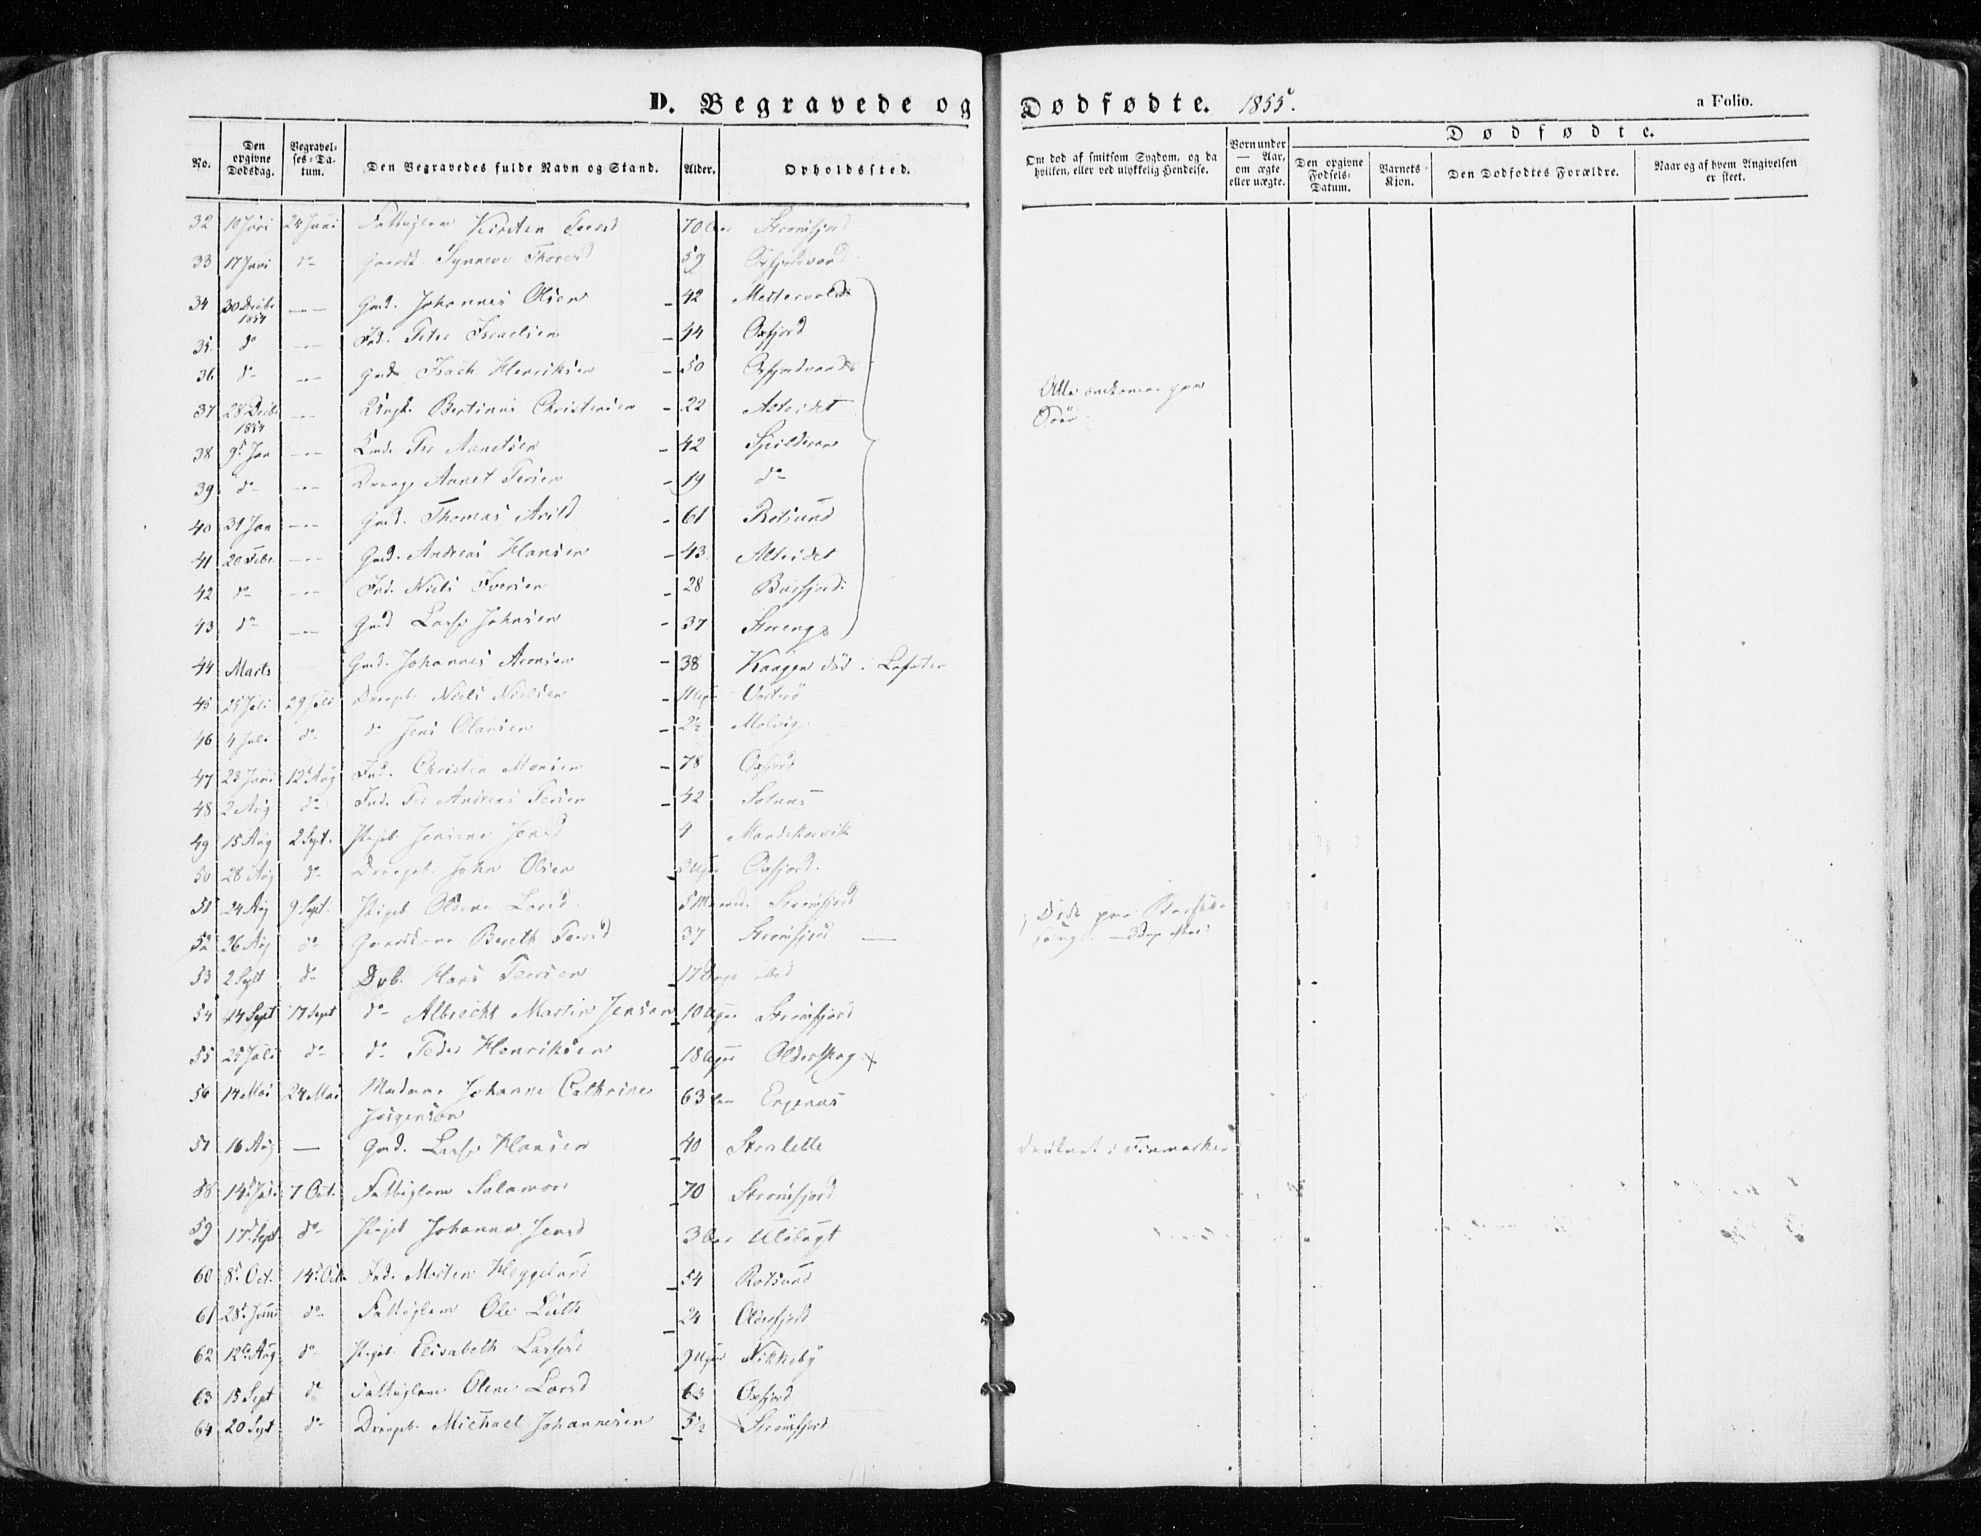 D. Begravede og Dødfødte. 1855.
a Folio.
No.
Den opgivne Dødsdag.
Begravelses-Datum.
Den Begravedes fulde Navn og Stand.
Alder.
Opholdssted.
Om død af smitsom Sygdom, og da hvilken, eller ved ulykkelig Hendelse.
Born under — Aar, om ægte eller uægte.
Dødfødte.
Den opgivne Fødsels-Datum.
Barnets Kjøn.
Den Dødfødtes Forældre.
Naar og af hvem Angivelsen er skeet.
32 10 Juni 24 Juni Fattiglem Kirsten 70 Aar Strømfjord
33 17 Juni do Synneve Thoresd 59
34 30 Decbr 1854 — Gmd. Johannes Olsen 42
35 do — Ind. Peter Israelsen 44 Oxfjord
36 do — Gmd. Isach Henriksen 50
37 28 Decbr 1854 — Ungk. Bertinus Christensen 22 Alteidet
Alle omkomne paa Søen
38 9d Jan — Per Aanetsen 42 Spilderen
39 do — Dreng Aanet Persen 19 do
40 31 Jan — Gmd. Thomas Arild 61 Rotsund
41 20 Febr — Gmd. Andreas Hansen 43 Alteidet
42 do — Ind. Niels Iversen 28 Burfjord
43 do — Gmd Lars Johnsen 37 Storeng
44 Marts Gmd. Johannes Aronsen 38 Kaagen død i Lofoten
45 25 Juli 29 Juli Drengeb. Niels Nielsen Vorterø
46 4 Juli do do Jens Olausen 2½
47 23 Juni 12d Aug Ind. Christen Monsen 78 Oxfjord
48 2 Aug do Ind. Per Andreas Persen 42
49 15 Aug 2 Sept. Pigeb Jensine Jensd
50 28 Aug do Drengeb. John Olsen 3 Uger Oxfjord.
51 24 Aug 9 Sept. Pigeb Oldine Larsd 5 Maaned. Strømfjord
52 26 Aug do Gaardkone Bereth 37 Strømfjord
53 2 Sept do Drb. Hans 17 Dage ibid
54 14 Sept 17 Sept do Albrecht Martin Jensen 10 Uger Strømfjord
55 25 Juli do do Peder Henriksen 18 Uger Olderskog
56 14 Mai 24 Mai Madame Johanne Cathrine Jørgensen 63 Aar
57 16 Aug — Gmd. Lars Hansen 40 Storslette druknet i Finmarken
58 14d Juli 7 Oct. Fattiglem Salamon 70 Strømfjord
59 17d Sept do Pigeb Johanna Jensd 3 Aar Uløbugt
60 8d Oct. 14d Oct Ind. Morten Heggelund 54 Rotsund
61 28d Juni do Fattiglem Ole 24 Olderfjord
62 12te Aug do Pigeb. Elisabeth Larsd 9 Uger Nikkeby
63 15 Sept do Fattiglem Olene Larsd 63 Oxfjord
64 20 Sept do Drengeb. Michael Johannesen 5½ Strømfjord